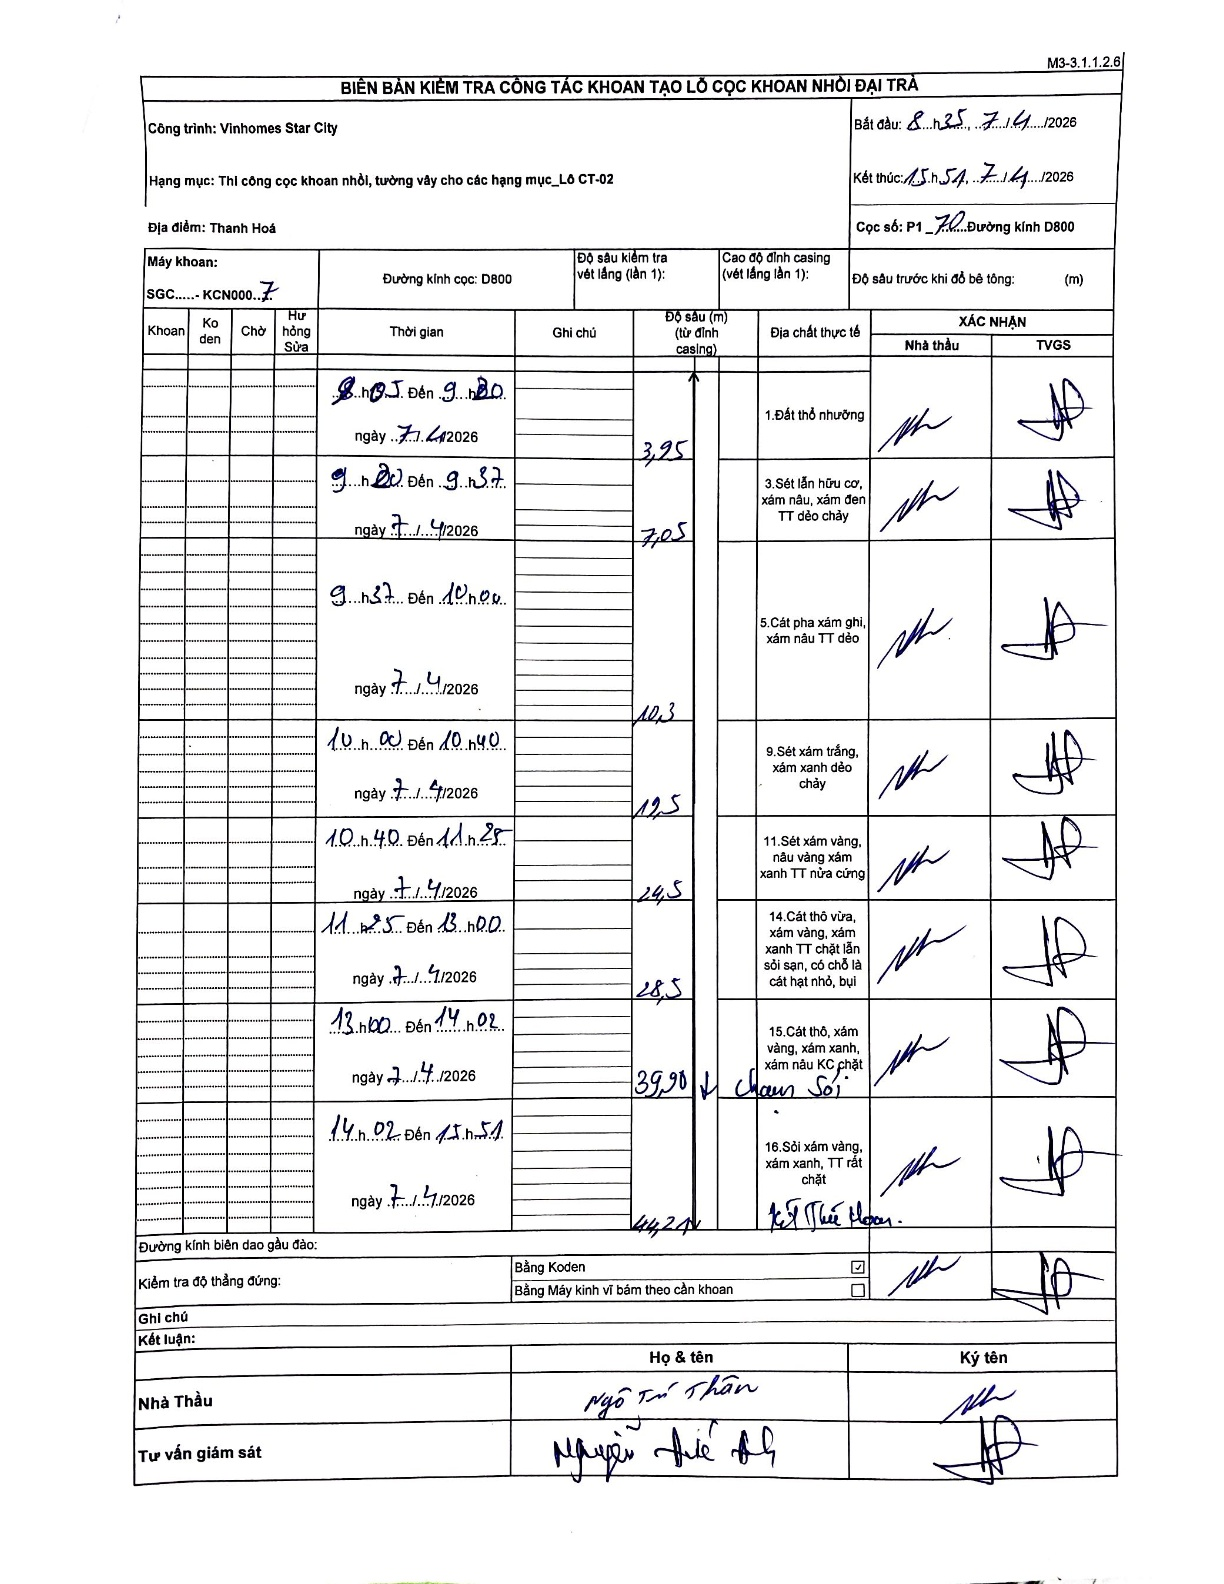 M3-3.1.1.2.6
BIÊN BẢN KIỂM TRA CÔNG TÁC KHOAN TẠO LỖ CỌC KHOAN NHỒI ĐẠI TRÀ
Công trình: Vinhomes Star City
Bắt đầu: 8 h35, 7/4/2026
Hạng mục: Thi công cọc khoan nhồi, tường vây cho các hạng mục_Lô CT-02
Kết thúc: 15h51, 7/4/2026
Địa điểm: Thanh Hoá
Cọc số: P1_70 Đường kính D800
Máy khoan:
SGC.....- KCN000..7
Đường kính cọc: D800
Độ sâu kiểm tra
vét lắng (lần 1):
Cao độ đỉnh casing
(vét lắng lần 1):
Độ sâu trước khi đổ bê tông: (m)
Khoan
Ko
den
Chờ
Hư
hỏng
Sửa
Thời gian
Ghi chú
Độ sâu (m)
(từ đỉnh
casing)
Địa chất thực tế
XÁC NHẬN
Nhà thầu
TVGS
8 h35 Đến 9 h20
ngày 7/4/2026
3,95
1.Đất thổ nhưỡng
9 h20 Đến 9 h37
ngày 7/4/2026
7,05
3.Sét lẫn hữu cơ,
xám nâu, xám đen
TT dẻo chảy
9 h37 Đến 10 h00
ngày 7/4/2026
10,3
5.Cát pha xám ghi,
xám nâu TT dẻo
10 h 00 Đến 10 h40
ngày 7/4/2026
19,5
9.Sét xám trắng,
xám xanh dẻo
chảy
10 h 40 Đến 11 h 25
ngày 7/4/2026
24,5
11.Sét xám vàng,
nâu vàng xám
xanh TT nửa cứng
11 h25 Đến 13 h00
ngày 7/4/2026
28,5
14.Cát thô vừa,
xám vàng, xám
xanh TT chặt lẫn
sỏi sạn, có chỗ là
cát hạt nhỏ, bụi
13 h00 Đến 14 h02
ngày 7/4/2026
39,90
15.Cát thô, xám
vàng, xám xanh,
xám nâu KC chặt
Chạm Sỏi
14 h 02 Đến 15 h51
ngày 7/4/2026
44,21
16.Sỏi xám vàng,
xám xanh, TT rất
chặt
Kết Thúc Khoan.
Đường kính biên dao gầu đào:
Kiểm tra độ thẳng đứng:
Bằng Koden ☑
Bằng Máy kinh vĩ bám theo cần khoan ☐
Ghi chú
Kết luận:
Họ & tên
Ký tên
Nhà Thầu
Ngô Trí Thân
Tư vấn giám sát
Nguyễn